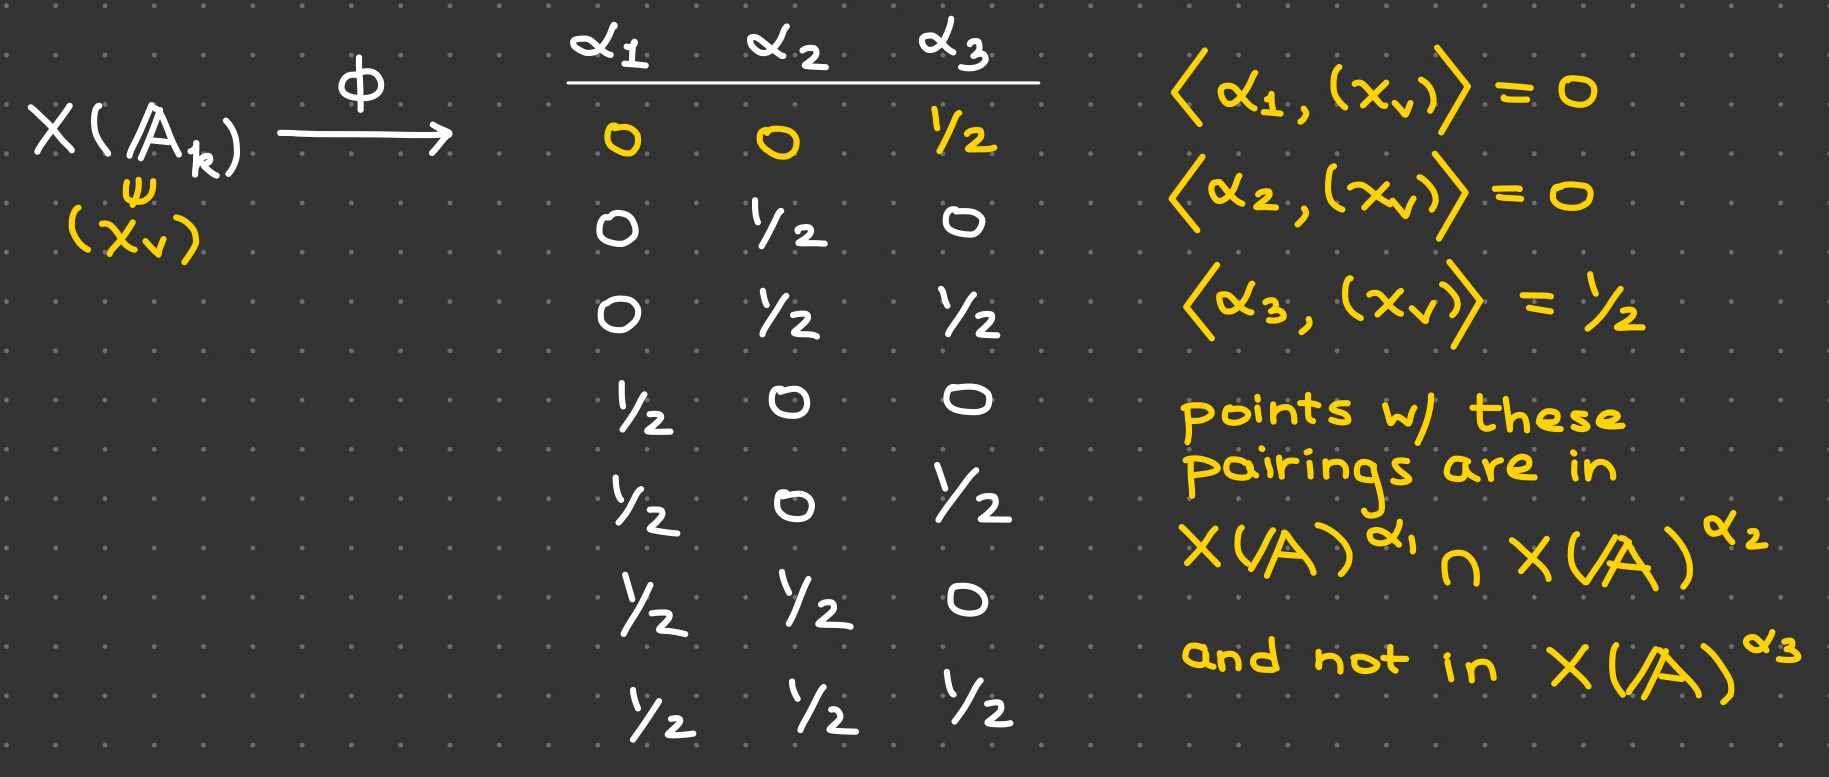 X(𝔸ₖ) ϕ→
Ψ
(xᵥ)
α₁ α₂ α₃
0 0 1/2
0 1/2 0
0 1/2 1/2
1/2 0 0
1/2 0 1/2
1/2 1/2 0
1/2 1/2 1/2
⟨α₁, (xᵥ)⟩ = 0
⟨α₂, (xᵥ)⟩ = 0
⟨α₃, (xᵥ)⟩ = 1/2
points w/ these
pairings are in
X(𝔸)^α₁ ∩ X(𝔸)^α₂
and not in X(𝔸)^α₃